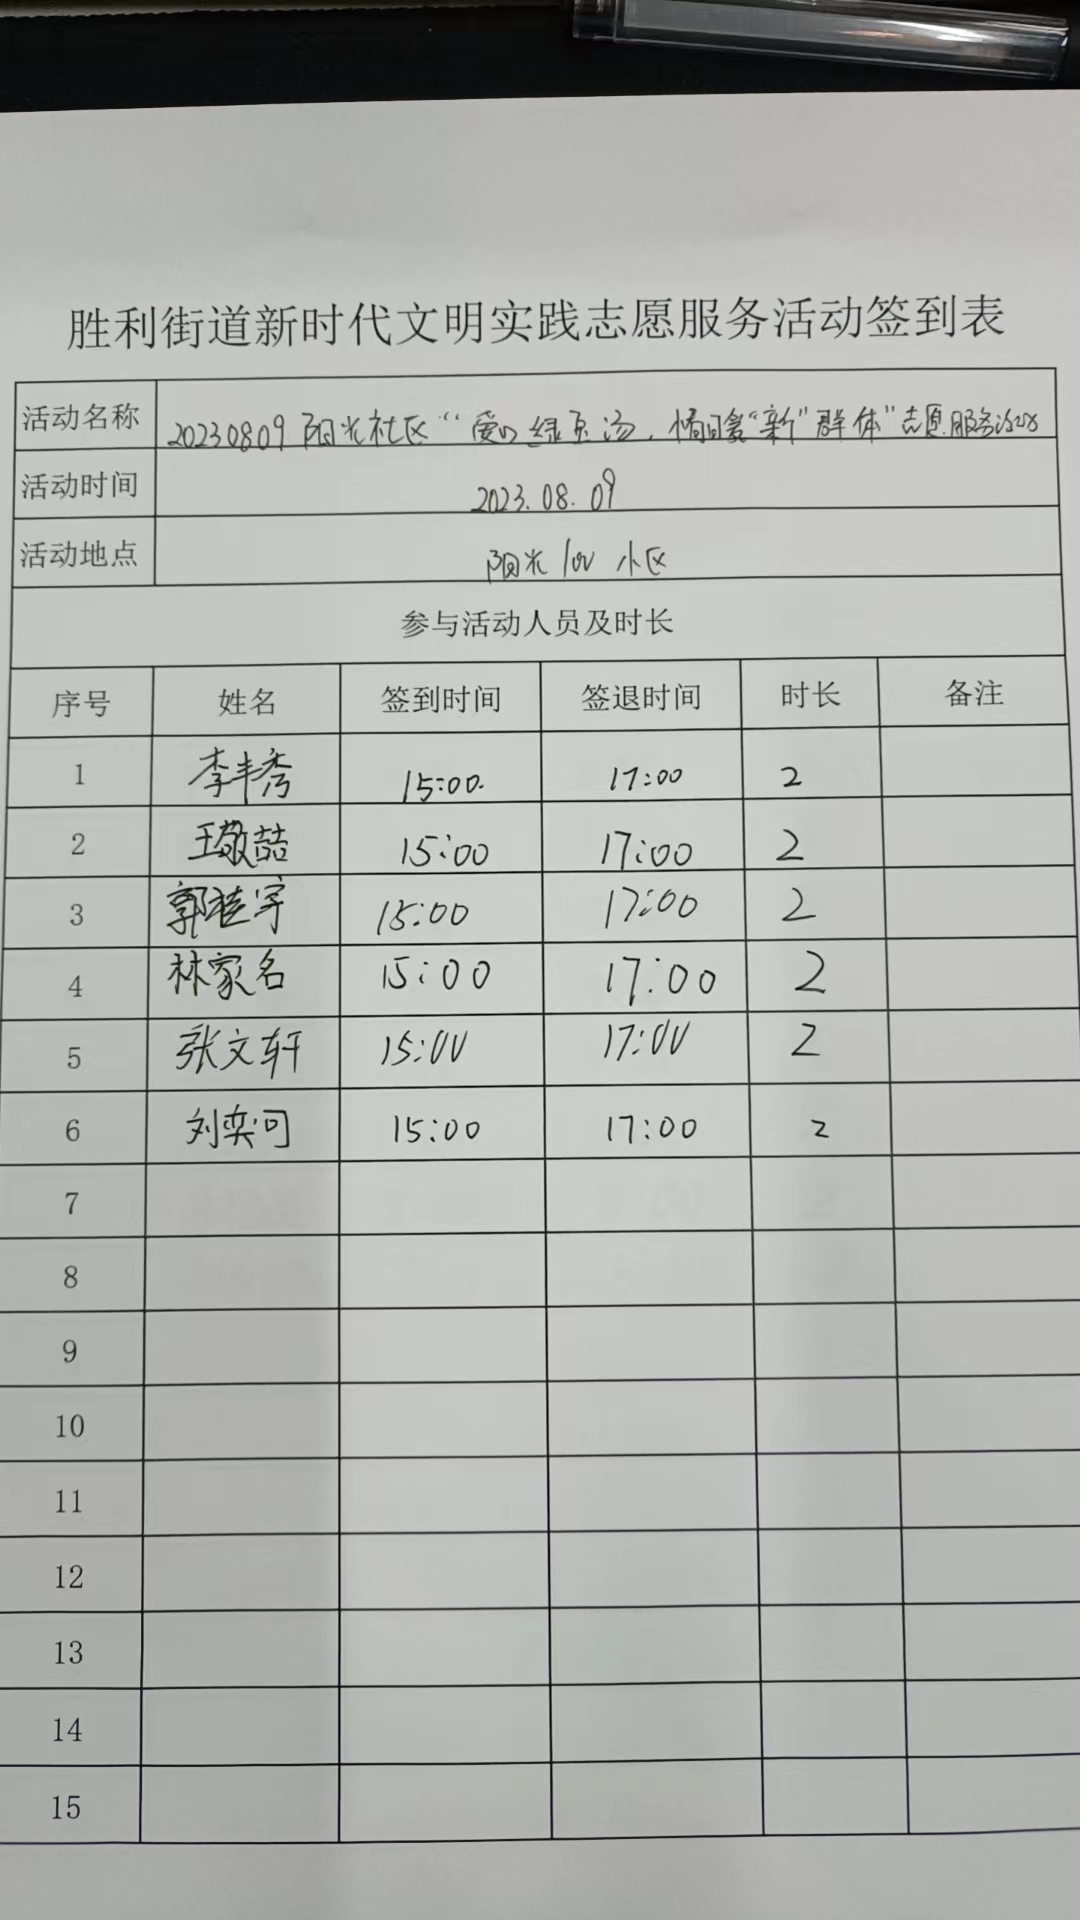 胜利街道新时代文明实践志愿服务活动签到表
活动名称 20230809阳光社区“爱心绿豆汤，情暖“新”群体”志愿服务活动
活动时间 2023.08.09
活动地点 阳光100小区
参与活动人员及时长
序号 姓名 签到时间 签退时间 时长 备注
1 李丰秀 15:00. 17:00 2
2 王敬喆 15:00 17:00 2
3 15:00 17:00 2
4 林家名 15:00 17:00 2
5 张文轩 15:00 17:00 2
6 刘奕可 15:00 17:00 2
7
8
9
10
11
12
13
14
15